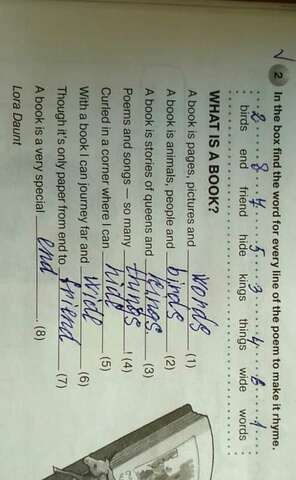 ✓
2 In the box find the word for every line of the poem to make it rhyme.
2 8 4 5 3 4 6 1
birds end friend hide kings things wide words
WHAT IS A BOOK?
A book is pages, pictures and words (1)
A book is animals, people and birds (2)
A book is stories of queens and kings. (3)
Poems and songs — so many things! (4)
Curled in a corner where I can hide (5)
With a book I can journey far and wide (6)
Though it's only paper from end to friend (7)
A book is a very special end. (8)
Lora Daunt